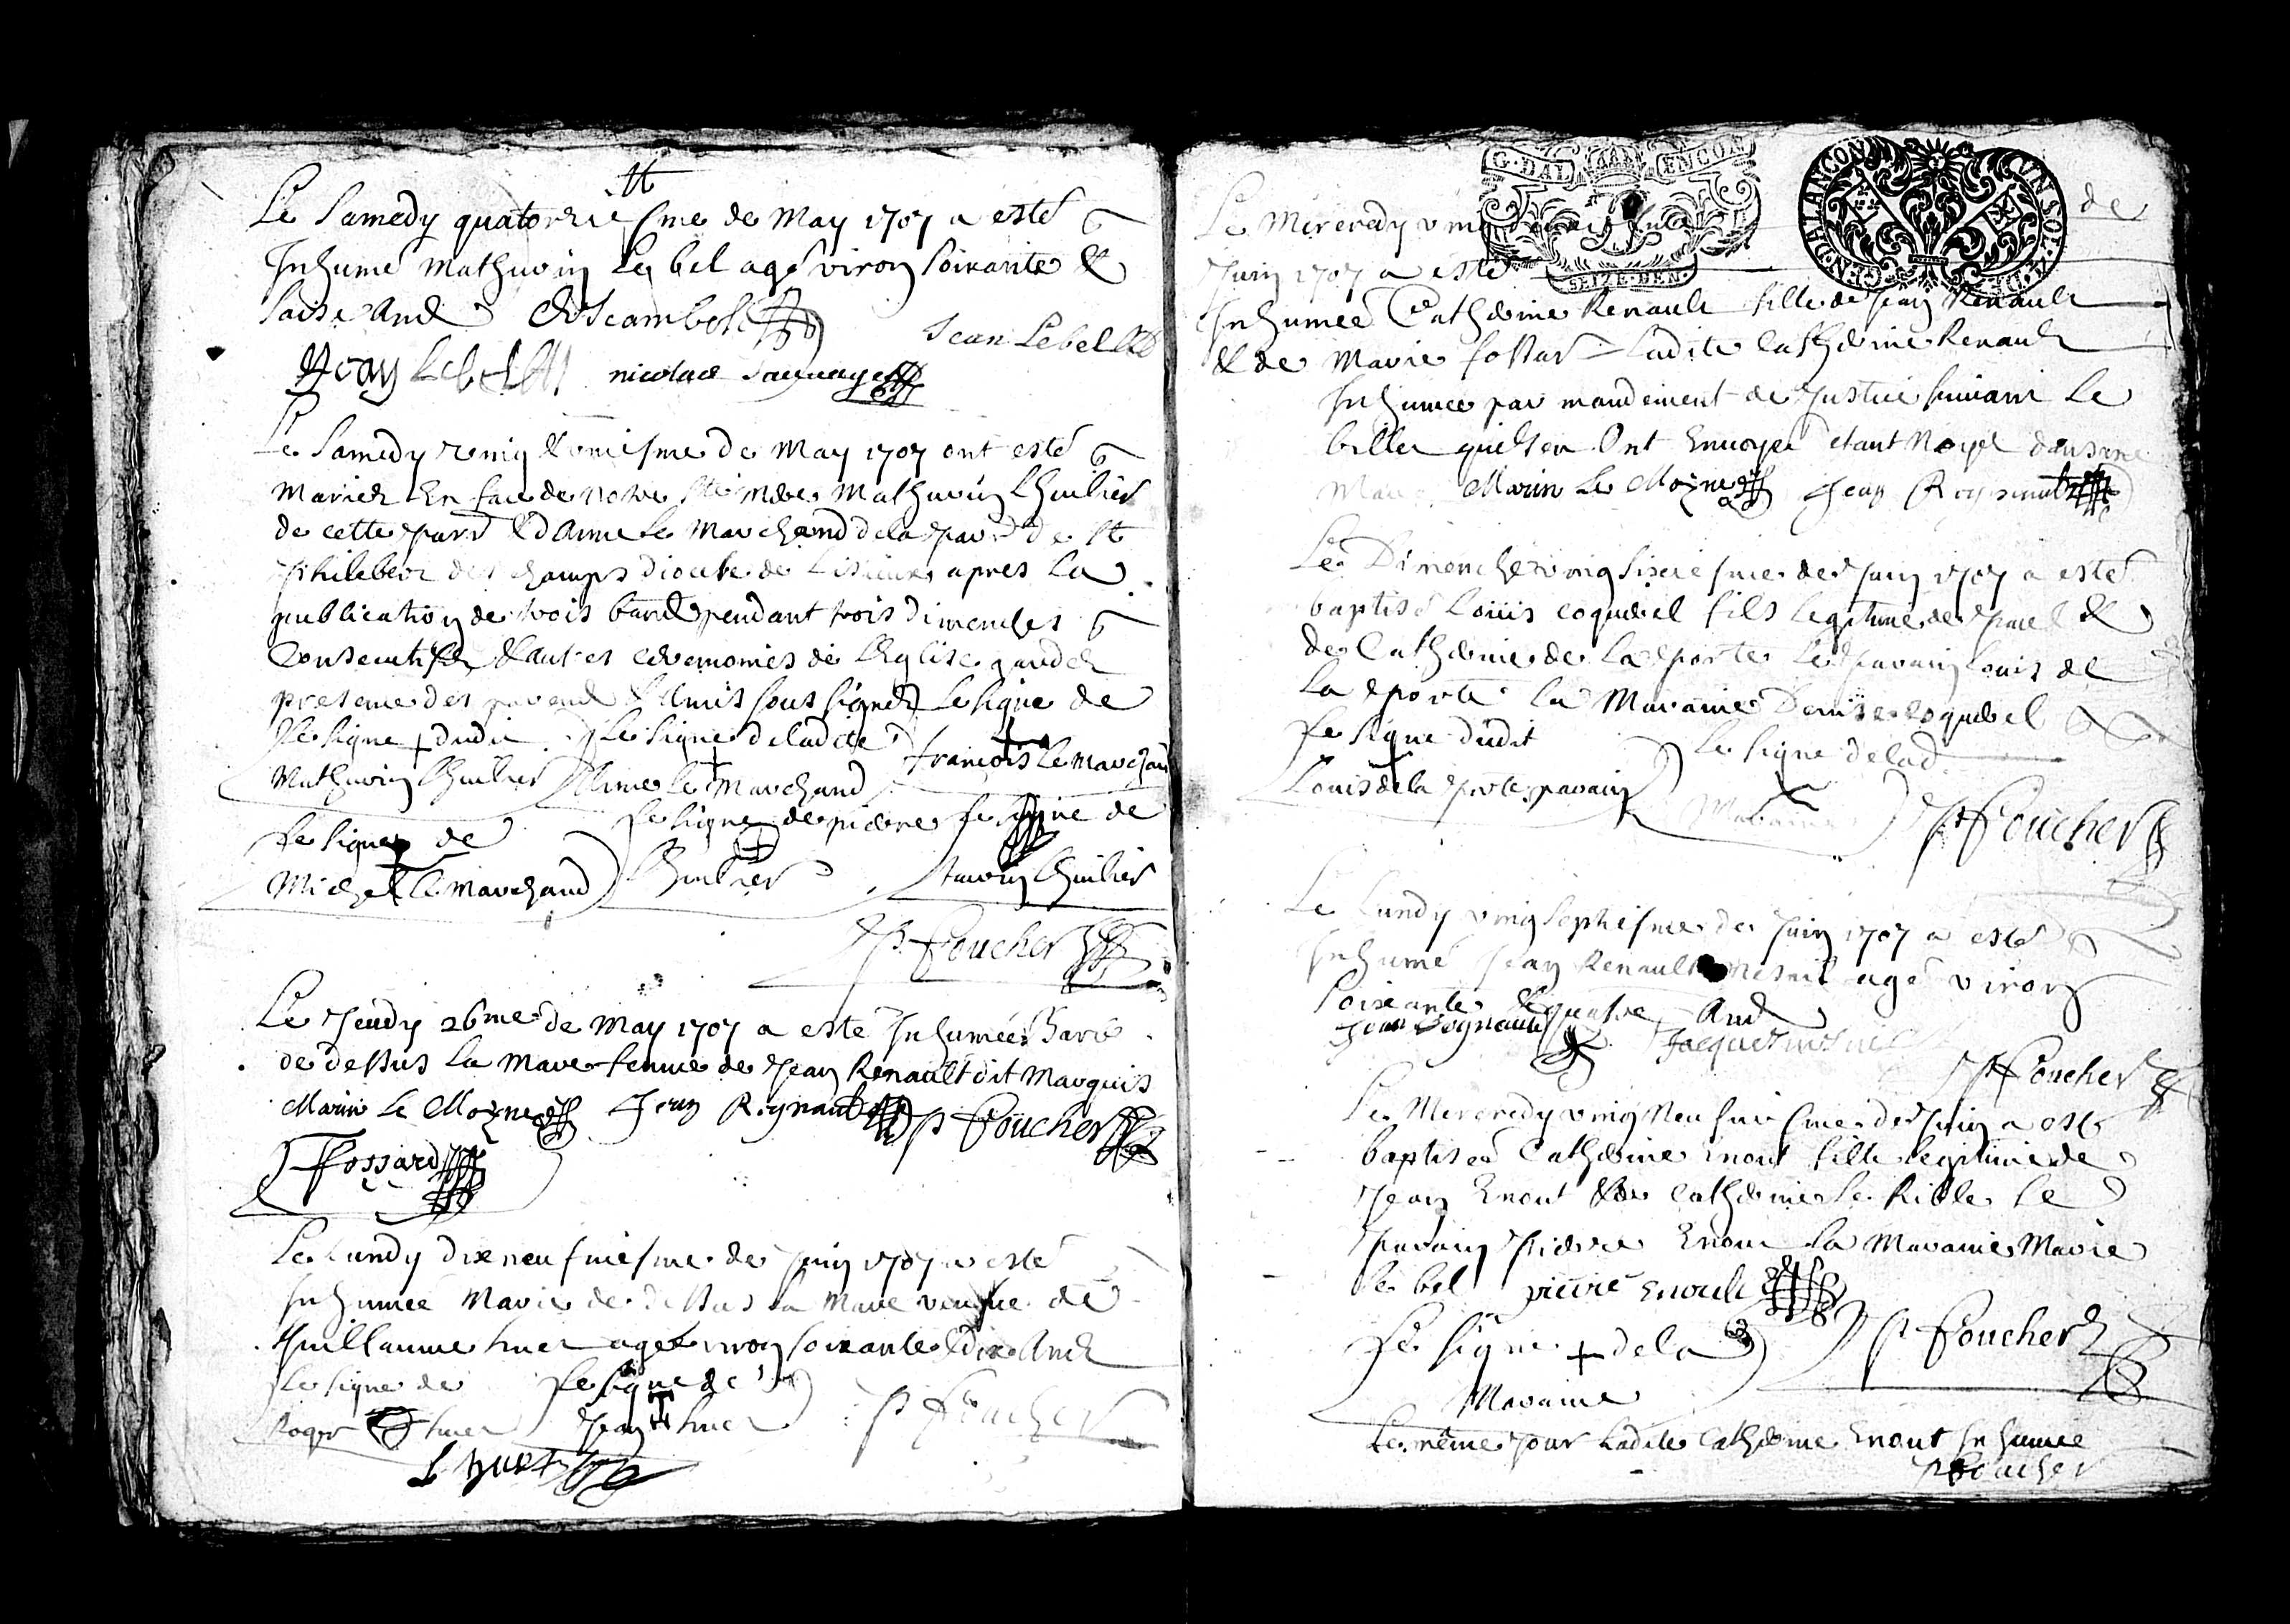 Le Samedy quatorziesme de May 1707 a esté
Inhumé Mathurin Le bel agé viron soixante &
saise ans
Jean Lebel
Jean Lebel nicolas Sauvage
Le Samedy vingt & uniesme de May 1707 ont esté
mariez En face de notre ste mere Mathurin Lhuilier
de cette parr & Anne Le Marchand de la parr de St
Philebert des champs diocese de Lisieux apres la
publication de trois bans pendant trois dimenches
Consecutifs & autres ceremonies de l'Eglise gardez
presence des parens & amis sous signez Le signe de
Le signe dudit Le signe de ladite francois Le Marchand
Mathurin Lhuilier Anne Le Marchand
Le signe de Le signe de pierre Le signe de
Michel Le Marchand Lhuilier Lhuilier
P Foucher
Le Jeudy 26me de May 1707 a esté Inhumée Barbe
de dessus La Mare femme de Jean Renault dit Marquis
Marin Le Moyne Jean Regnault P Foucher
Fossard
Le Lundy dix neufuiesme de Juin 1707 a esté
Inhumée Marie de dessus La Mare veufue de
Guillaume huet agée viron soixante & dix Ans
Le signe de Le signe de
Roger huet Jean huet P Foucher
L huet
G·DAL ENCON
SEIZE·DEN·
GEN·D'ALANCON
UN SOL
de
Le Mercredy
Juin 1707 a esté
Inhumée Catherine Renault fille de Jean Renault
& de Marie fossard Ladite Catherine Renault
Inhumée par mandement de Justice suivant Le
billet quils en Ont Envoyé etant Noyé dans une
Mare Marin Le Moyne Jean Regnault
Le Dimenche vingt sixiesme de Juin 1707 a esté
baptisé Louis coquerel fils Legitime de &
de Catherine de La porte Le parain Louis de
La porte La Maraine Denise coquerel
Le signe dudit Le signe de lad
Louis de la porte parain Maraine P Foucher
Le Lundy vingt septiesme de Juin 1707 a esté
Inhumé Jean Renault agé viron
soixante & quatre Ans
Jean Regnault Jacques
P Foucher
Le Mercredy vingt Neufuiesme de Juin a esté
baptisée Catherine Enout fille legitime de
Jean Enout & de Catherine Le Rible Le
parain Pierre Enout La Maraine Marie
Le bel pierre Enoult
Le signe de la P Foucher
Maraine
Le même jour Ladite Catherine Enout Inhumée
P Foucher